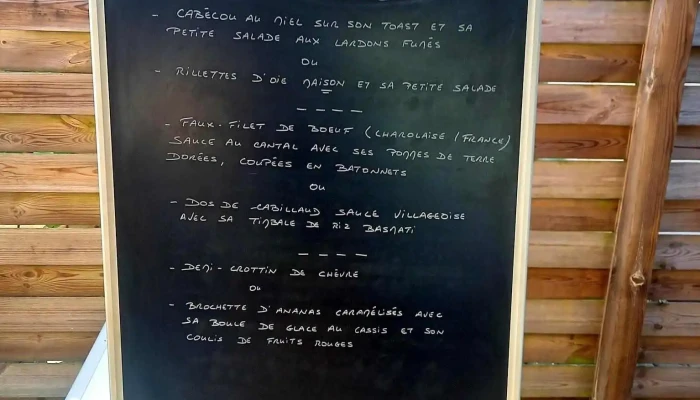 - CABÉCOU AU MIEL SUR SON TOAST ET SA
PETITE SALADE AUX LARDONS FUMÉS
OU
- RILLETTES D'OIE MAISON ET SA PETITE SALADE
- - - -
- FAUX-FILET DE BOEUF (CHAROLAISE / FRANCE)
SAUCE AU CANTAL AVEC SES POMMES DE TERRE
DORÉES, COUPÉES EN BATONNETS
OU
- DOS DE CABILLAUD SAUCE VILLAGEOISE
AVEC SA TIMBALE DE RIZ BASMATI
- - - -
- DEMI-CROTTIN DE CHÈVRE
OU
- BROCHETTE D'ANANAS CARAMÉLISÉS AVEC
SA BOULE DE GLACE AU CASSIS ET SON
COULIS DE FRUITS ROUGES